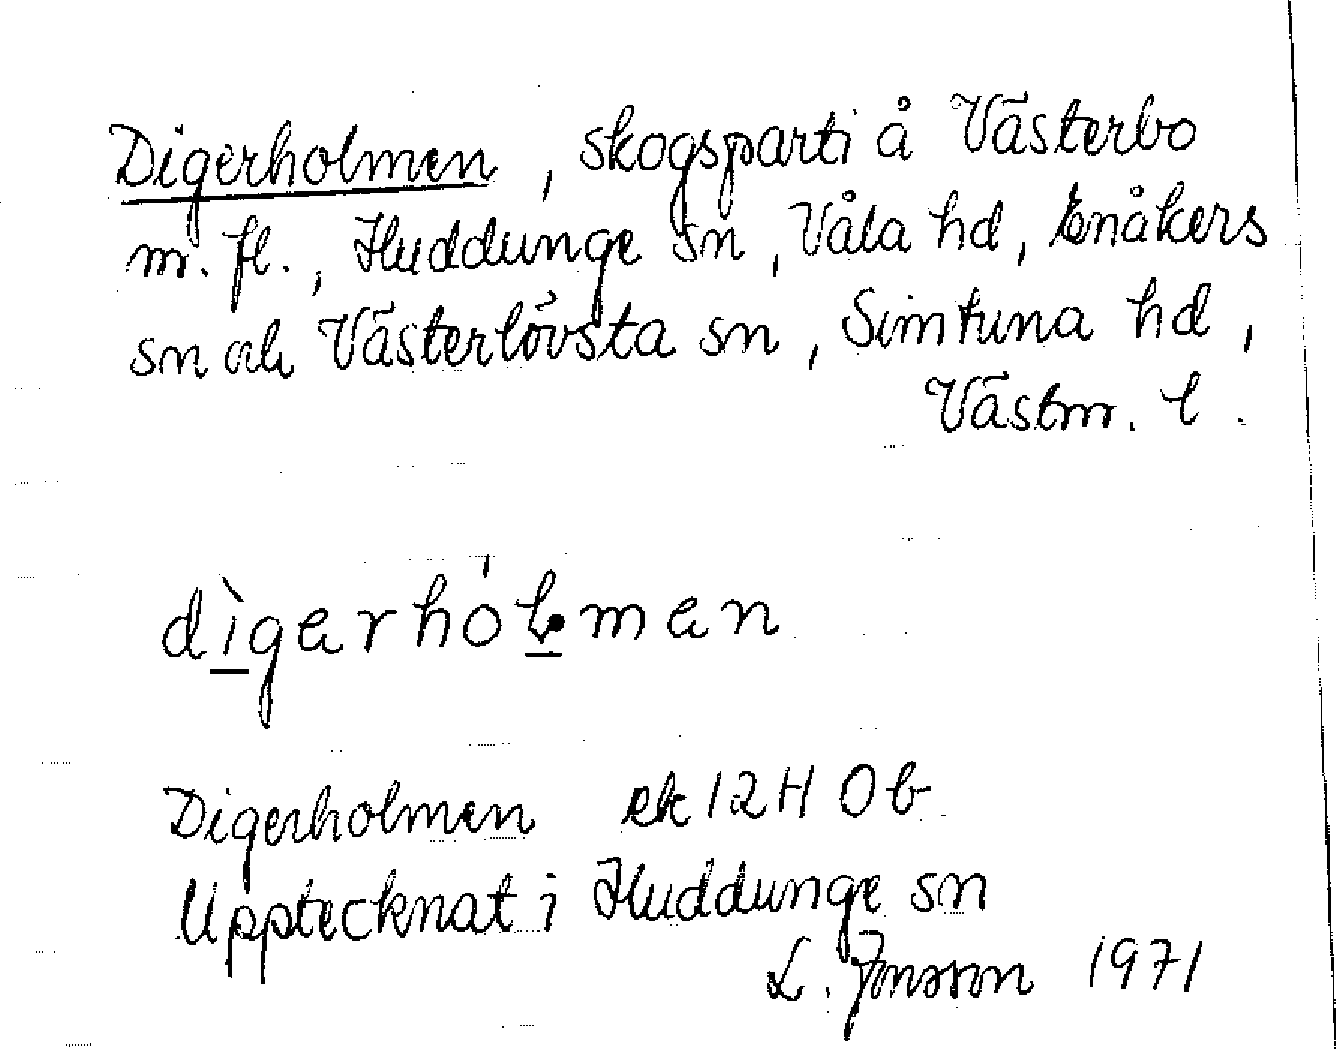 Digerholmen, skogsparti å Västerbo
m. fl., Huddunge sn, Våla hd, Enåkers
sn och Västerlövsta sn, Simtuna hd,
Västm. l.
dìgerhól̥men
Digerholmen ek 12H 0b
Upptecknat i Huddunge sn
L. Jonsson 1971